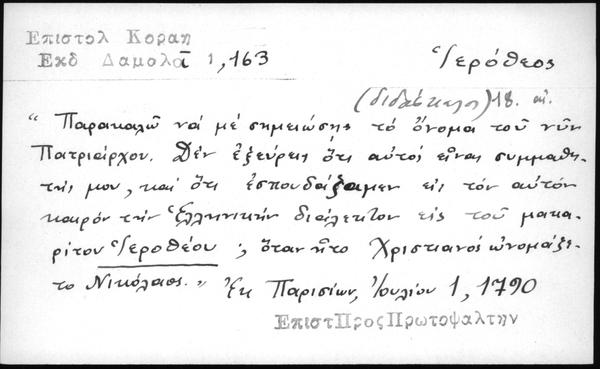 Επιστολ Κοραη
Εκδ Δαμαλᾶ 1, 163
Ἱερόθεος
(διδάσκαλος) 18. αἰ.
“ Παρακαλῶ νά μέ σημειώσῃς τό ὄνομα τοῦ νῦν
Πατριάρχου. Δέν ἐξεύρεις ὅτι αὐτός εἶναι συμμαθη-
τής μου, καί ὅτι ἐσπουδάξαμεν εἰς τόν αὐτόν
καιρόν τήν Ἑλληνικήν διάλεκτον εἰς τοῦ μακα-
ρίτου Ἱεροθέου ; ὅταν ἦτο Χριστιανός ὠνομάζε-
το Νικόλαος. „ Ἐκ Παρισίων, Ἰουλίου 1, 1790
ΕπιστΠροςΠρωτοψαλτην